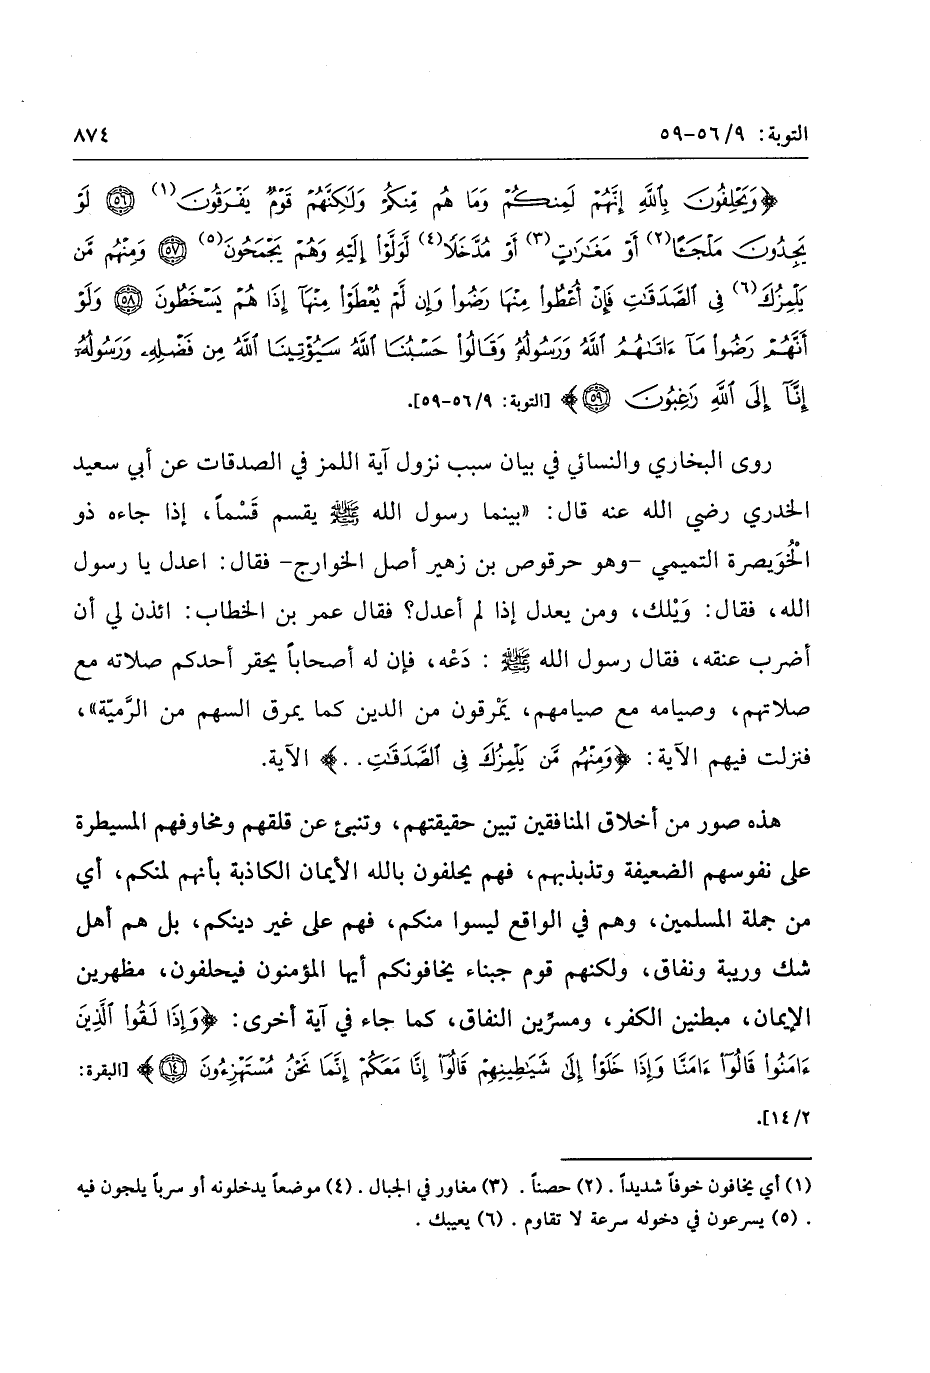 التوبة: ٩/ ٥٦-٥٩ ٨٧٤
﴿وَيَحْلِفُونَ بِٱللَّهِ إِنَّهُمْ لَمِنكُمْ وَمَا هُم مِّنكُمْ وَلَٰكِنَّهُمْ قَوْمٌ يَفْرَقُونَ(١) ۝٥٦ لَوْ
يَجِدُونَ مَلْجَـًٔا(٢) أَوْ مَغَٰرَٰتٍ(٣) أَوْ مُدَّخَلًا(٤) لَّوَلَّوْا۟ إِلَيْهِ وَهُمْ يَجْمَحُونَ(٥) ۝٥٧ وَمِنْهُم مَّن
يَلْمِزُكَ(٦) فِى ٱلصَّدَقَٰتِ فَإِنْ أُعْطُوا۟ مِنْهَا رَضُوا۟ وَإِن لَّمْ يُعْطَوْا۟ مِنْهَآ إِذَا هُمْ يَسْخَطُونَ ۝٥٨ وَلَوْ
أَنَّهُمْ رَضُوا۟ مَآ ءَاتَىٰهُمُ ٱللَّهُ وَرَسُولُهُۥ وَقَالُوا۟ حَسْبُنَا ٱللَّهُ سَيُؤْتِينَا ٱللَّهُ مِن فَضْلِهِۦ وَرَسُولُهُۥٓ
إِنَّآ إِلَى ٱللَّهِ رَٰغِبُونَ ۝٥٩﴾ [التوبة: ٩/ ٥٦-٥٩].
روى البخاري والنسائي في بيان سبب نزول آية اللمز في الصدقات عن أبي سعيد
الخدري رضي الله عنه قال: «بينما رسول الله ﷺ يقسم قَسْماً، إذا جاءه ذو
الْخُوَيصرة التميمي -وهو حرقوص بن زهير أصل الخوارج- فقال: اعدل يا رسول
الله، فقال: وَيْلك، ومن يعدل إذا لم أعدل؟ فقال عمر بن الخطاب: ائذن لي أن
أضرب عنقه، فقال رسول الله ﷺ : دَعْه، فإن له أصحاباً يحقر أحدكم صلاته مع
صلاتهم، وصيامه مع صيامهم، يَمْرقون من الدين كما يمرق السهم من الرَّميّة»،
فنزلت فيهم الآية: ﴿وَمِنْهُم مَّن يَلْمِزُكَ فِى ٱلصَّدَقَٰتِ..﴾ الآية.
هذه صور من أخلاق المنافقين تبين حقيقتهم، وتنبئ عن قلقهم ومخاوفهم المسيطرة
على نفوسهم الضعيفة وتذبذبهم، فهم يحلفون بالله الأيمان الكاذبة بأنهم لمنكم، أي
من جملة المسلمين، وهم في الواقع ليسوا منكم، فهم على غير دينكم، بل هم أهل
شك وريبة ونفاق، ولكنهم قوم جبناء يخافونكم أيها المؤمنون فيحلفون، مظهرين
الإيمان، مبطنين الكفر، ومسرِّين النفاق، كما جاء في آية أخرى: ﴿وَإِذَا لَقُوا۟ ٱلَّذِينَ
ءَامَنُوا۟ قَالُوٓا۟ ءَامَنَّا وَإِذَا خَلَوْا۟ إِلَىٰ شَيَٰطِينِهِمْ قَالُوٓا۟ إِنَّا مَعَكُمْ إِنَّمَا نَحْنُ مُسْتَهْزِءُونَ ۝١٤﴾ [البقرة:
٢/ ١٤].
(١) أي يخافون خوفاً شديداً . (٢) حصناً . (٣) مغاور في الجبال . (٤) موضعاً يدخلونه أو سرباً يلجون فيه
. (٥) يسرعون في دخوله سرعة لا تقاوم . (٦) يعيبك .